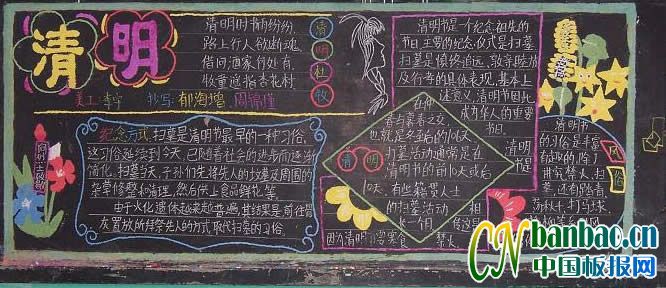 清明
清明时节雨纷纷
路上行人欲断魂
借问酒家何处有
牧童遥指杏花村
清明 杜牧
美工:李宁 抄写:郁海增 周锦惶
纪念方式 扫墓是清明节最早的一种习俗,
这习俗延续到今天,已随着社会的进步而逐渐
简化。扫墓当天,子孙们先将先人的坟墓及周围的
杂草修整和清理,然后供上食品鲜花等。
由于火化遗体越来越普遍,其结果是前往骨
灰置放所拜祭先人的方式取代扫墓的习俗。
清明节是一个纪念祖先的
节日.主要的纪念仪式是扫墓
扫墓是慎终追远、敦亲睦族
及行孝的具体表现,基本上
述意义,清明节因此
成为华人的重要
节日。
清明节是
在仲
春与暮春之交
也就是冬至后的106天
扫墓活动通常是在
清明节的前10天或后
10天。有些籍贯人士
的扫墓活动
长达一个月
清明
因为清明节要寒食禁火
清明节
的习俗是丰富
有趣的,除了
讲究禁火、扫
墓,还有踏青
荡秋千、打马球
风俗
CN banbao.cn
中国板报网